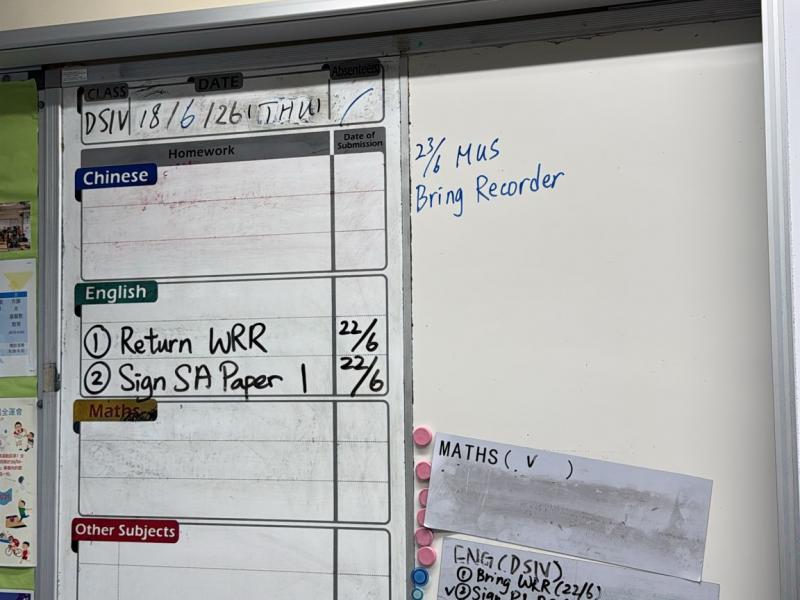 CLASS DATE Absentees
DSIV 18/6/26 (THU) /
Homework Date of Submission
Chinese
English
① Return WRR 22/6
② Sign SA Paper 1 22/6
Maths
Other Subjects
23/6 MUS
Bring Recorder
MATHS ( v )
ENG (DSIV)
① Bring WRR (22/6)
v ② Sign